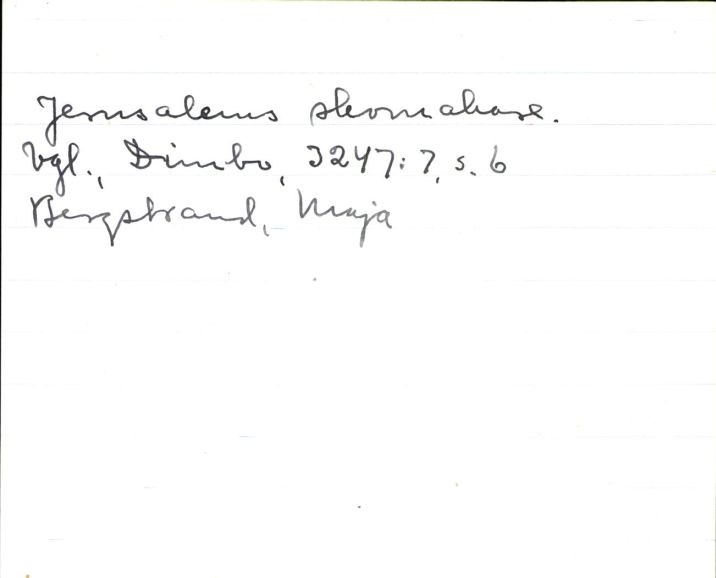 Jerusalems skomakare.
Vgl., Dimbo, 3247:7, s. 6
Bergstrand, Maja